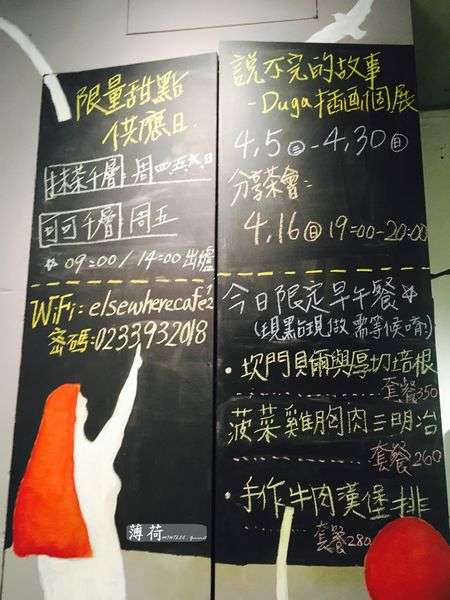 限量甜點
供應日
抹茶千層 周四五六日
可可千層 周五
☆ 09:00 / 14:00 出爐
WiFi: elsewherecafe 1 2
密碼:0233932018
薄荷
說不完的故事
-Duga插画個展
4,5㊂-4,30㊐
分享茶會:
4,16㊐ 19:00-20:00
今日限定早午餐☆
(現點現做 需等候唷)
·坎門貝爾與厚切培根
套餐350
菠菜雞胸肉三明治
套餐260
·手作牛肉漢堡排
套餐280